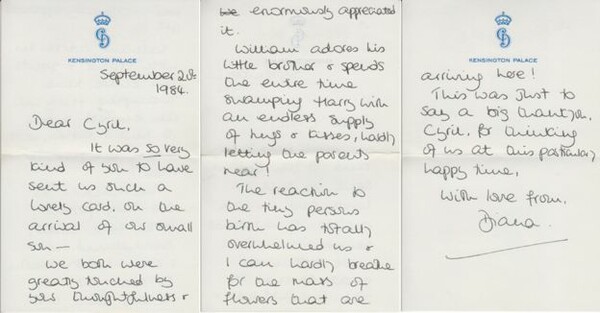 KENSINGTON PALACE
September 20th
1984.
Dear Cyril,
It was so very
kind of you to have
sent us such a
lovely card, on the
arrival of our small
son —
We both were
greatly touched by
your thoughtfulness &
We enormously appreciated
it.
William adores his
little brother & spends
the entire time
swamping Harry with
an endless supply
of hugs & kisses, hardly
letting the parents
near!
The reaction to
one tiny persons
birth has totally
overwhelmed us &
I can hardly breathe
for the mass of
flowers that are
KENSINGTON PALACE
arriving here!
This was just to
say a big thankyou,
Cyril, for thinking
of us at this particularly
happy time,
With love from,
Diana.